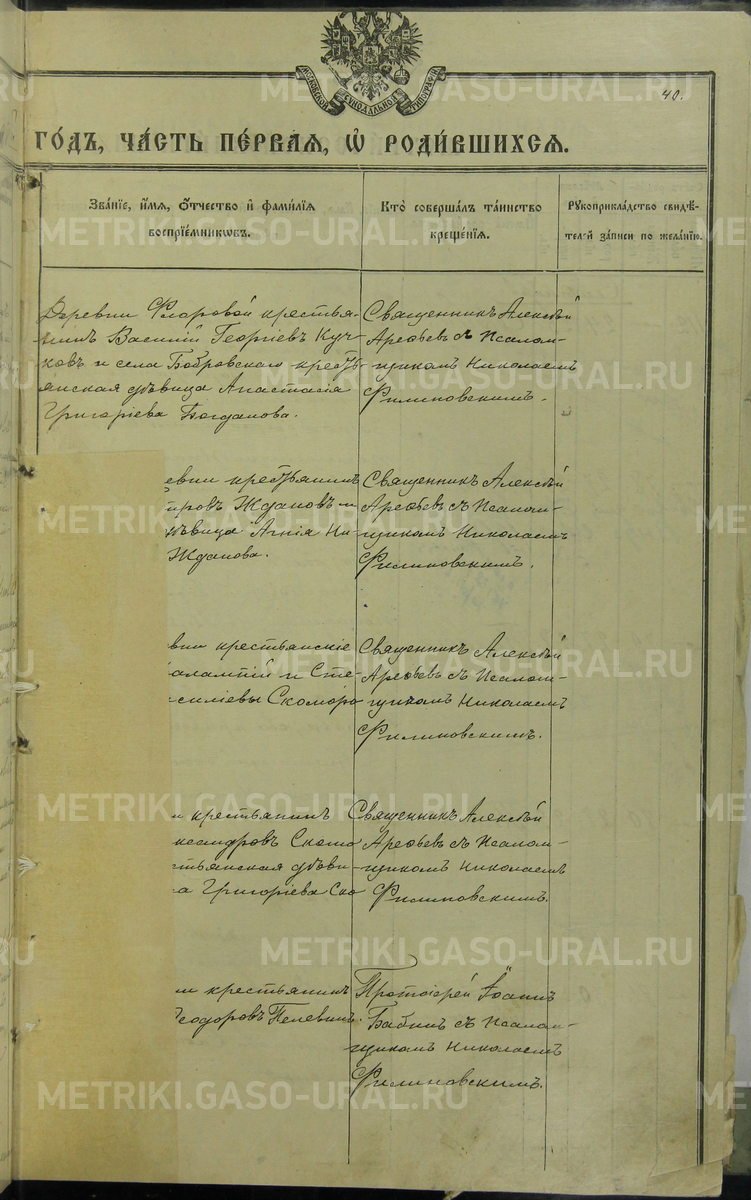 МОСКОВСКОЙ СѴНОДАЛЬНОЙ ТИПОГРАФІИ
40.
ГО́ДЪ, ЧА́СТЬ ПЕ́РВАЯ, Ѡ҆ РОДИ́ВШИХСЯ.
Зва́нїе, и҆́мя, ѻ҆́тчество и҆ фами́лїя
воспрїе́мниковъ.
Кто̀ соверша́лъ та́инство
креще́нїя.
Рꙋкоприкла́дство свидѣ́-
телей за́писи по жела́нїю.
Деревни Фларовой крестья-
нинъ Василій Георгіевъ Куч-
ковъ и села Бобровскаго кресть-
янская дѣвица Анастасія
Григоріева Богданова.
Священникъ Алексѣй
Арефьевъ съ Псалом-
щикомъ Николаемъ
Филиповскимъ.
евни крестьянинъ
провъ Ждановъ и
дѣвица Агнія Ни-
Жданова.
Священникъ Алексѣй
Арефьевъ съ Псалом-
щикомъ Николаемъ
Филиповскимъ.
вни крестьянскіе
алампій и Сте-
силіевы Скоморо
Священникъ Алексѣй
Арефьевъ съ Псалом-
щикомъ Николаемъ
Филиповскимъ.
и крестьянинъ
ксандровъ Скомо
стьянская дѣви-
а Григоріева Ско
Священникъ Алексѣй
Арефьевъ съ Псалом-
щикомъ Николаемъ
Филиповскимъ.
и крестьянинъ
Ѳеодоровъ Пелевинъ.
Протоіерей Іоаннъ
Бабинъ съ Псалом-
щикомъ Николаемъ
Филиповскимъ.
METRIKI.GASO-URAL.RU